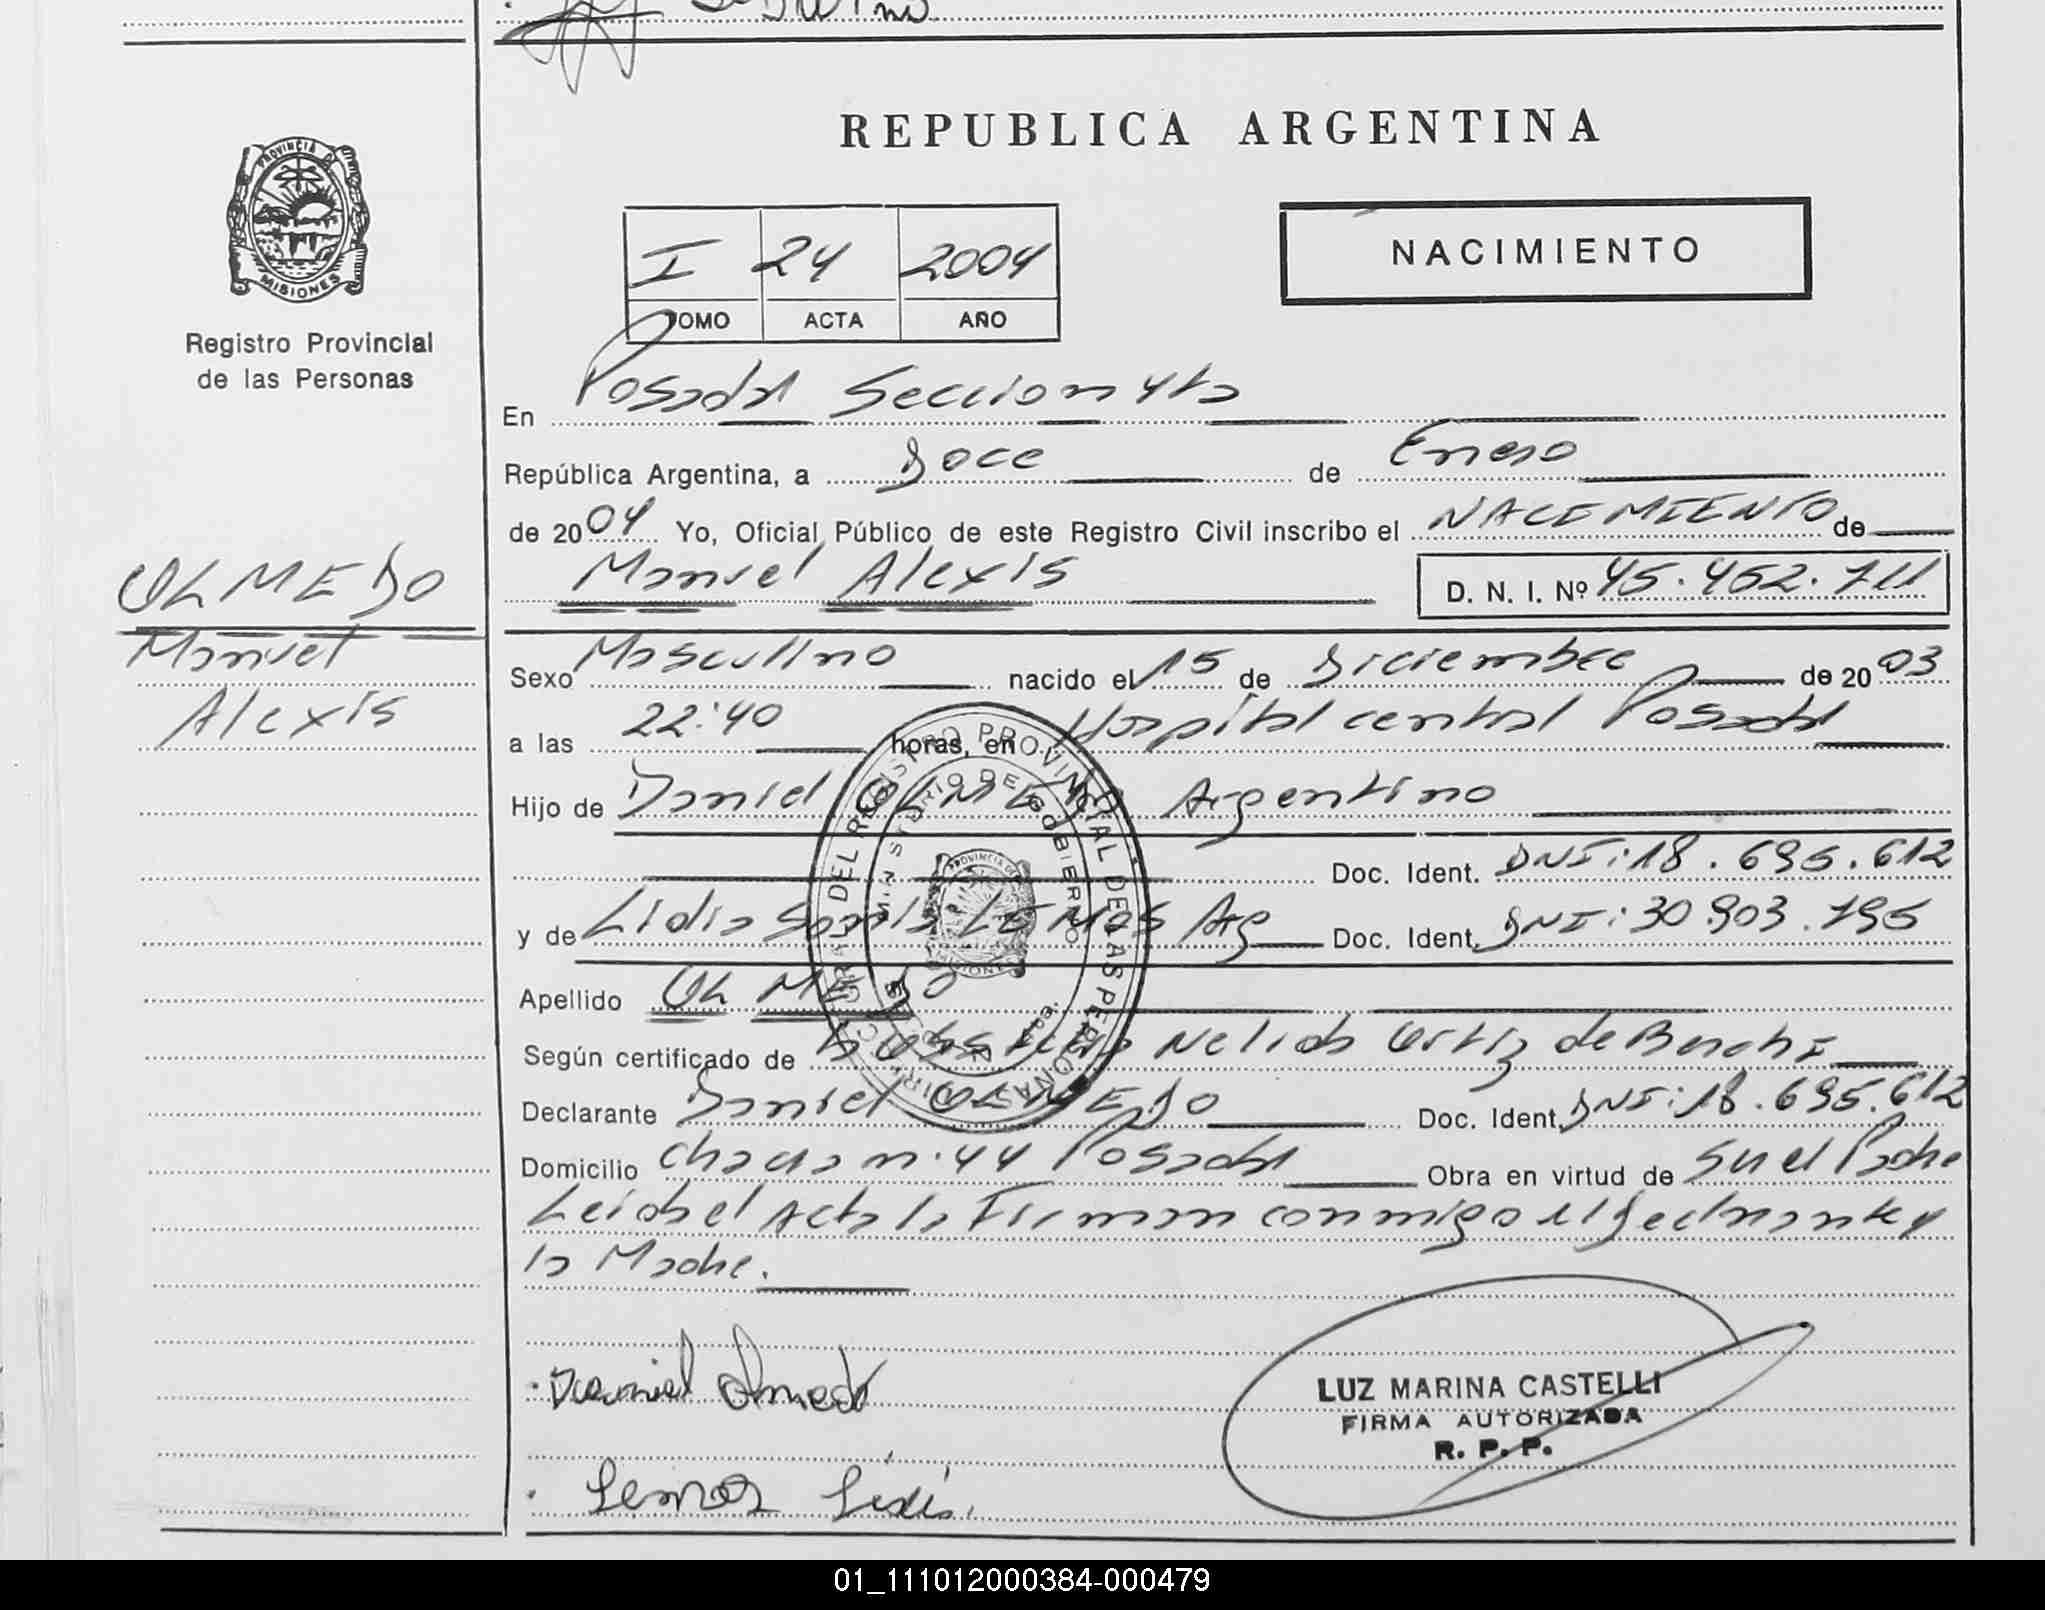 REPUBLICA ARGENTINA
PROVINCIA DE MISIONES
Registro Provincial
de las Personas
I 24 2004
TOMO ACTA AÑO
NACIMIENTO
En Posadas Seccion 4ta
República Argentina, a Doce de Enero
de 2004 Yo, Oficial Público de este Registro Civil inscribo el NACIMIENTO de
Manuel Alexis D. N. I. Nº 45.452.711
OLMEDO
Manuel
Alexis
Sexo Masculino nacido el 15 de Diciembre de 2003
a las 22:40 horas, en Hospital central Posadas
Hijo de Daniel OLMEDO Argentino
Doc. Ident. DNI: 18.695.612
y de Lidia Sonia LEMOS Arg Doc. Ident. DNI: 30.903.795
Apellido OLMEDO
Según certificado de Obstetra Nelida Ortiz de
Declarante Daniel OLMEDO Doc. Ident. DNI: 18.695.612
Domicilio n. 44 Posadas Obra en virtud de Ser el Padre
Leida el Acta la Firman conmigo el declarante y
la Madre.
DIRECCION GRAL DEL REGISTRO PROVINCIAL DE LAS PERSONAS
MINISTERIO DE GOBIERNO
Daniel Olmedo
LUZ MARINA CASTELLI
FIRMA AUTORIZADA
R. P. P.
Lemos Lidia.
01_111012000384-000479